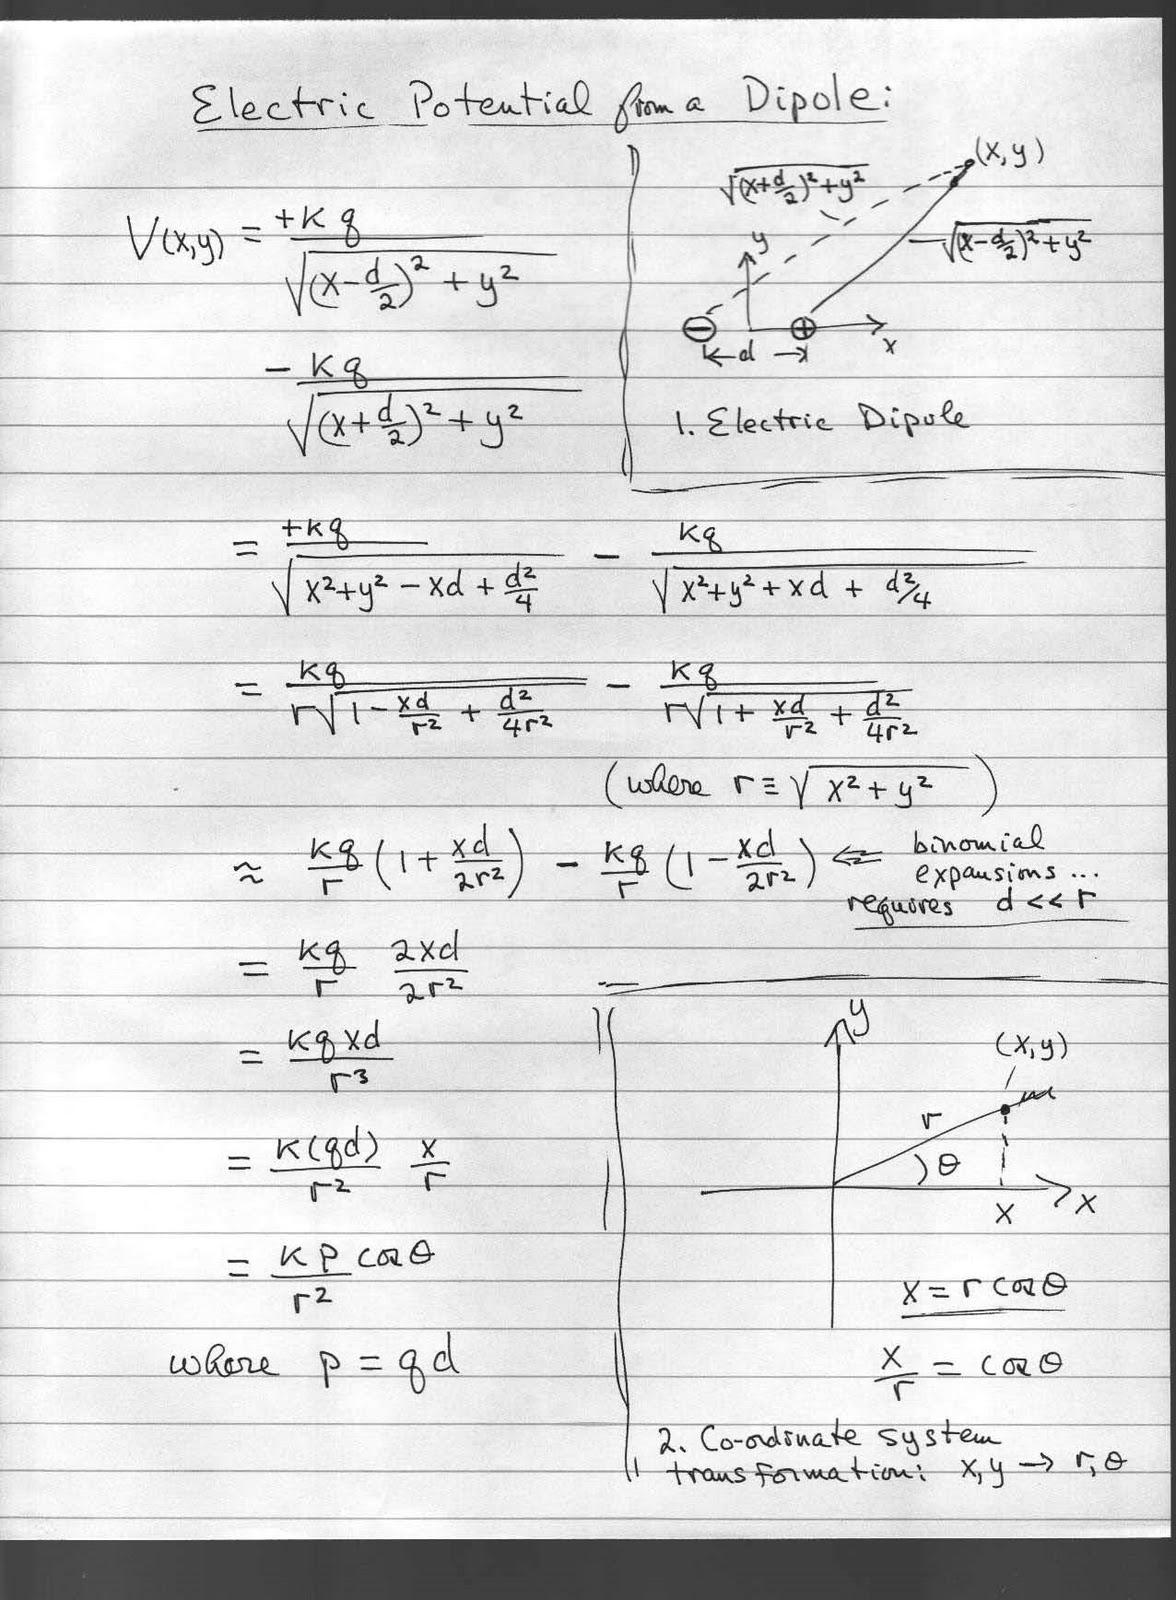 Electric Potential from a Dipole:
V(x,y) = +kq / √((x-d/2)² + y²)
- kq / √((x+d/2)² + y²)
√((x+d/2)²+y²)
(x,y)
√((x-d/2)²+y²)
y
x
− +
d
1. Electric Dipole
= +kq / √(x²+y² - xd + d²/4) - kq / √(x²+y² + xd + d²/4)
= kq / r√(1 - xd/r² + d²/4r²) - kq / r√(1 + xd/r² + d²/4r²)
(where r ≡ √(x² + y²))
≈ kq/r (1 + xd/2r²) - kq/r (1 - xd/2r²) ⇐ binomial
expansions ...
requires d << r
= kq/r 2xd/2r²
= kq xd / r³
= k(qd)/r² x/r
= k p cos θ / r²
where p = qd
y
(x,y)
r
θ
x
x
x = r cos θ
x/r = cos θ
2. Co-ordinate system
transformation: x,y → r,θ